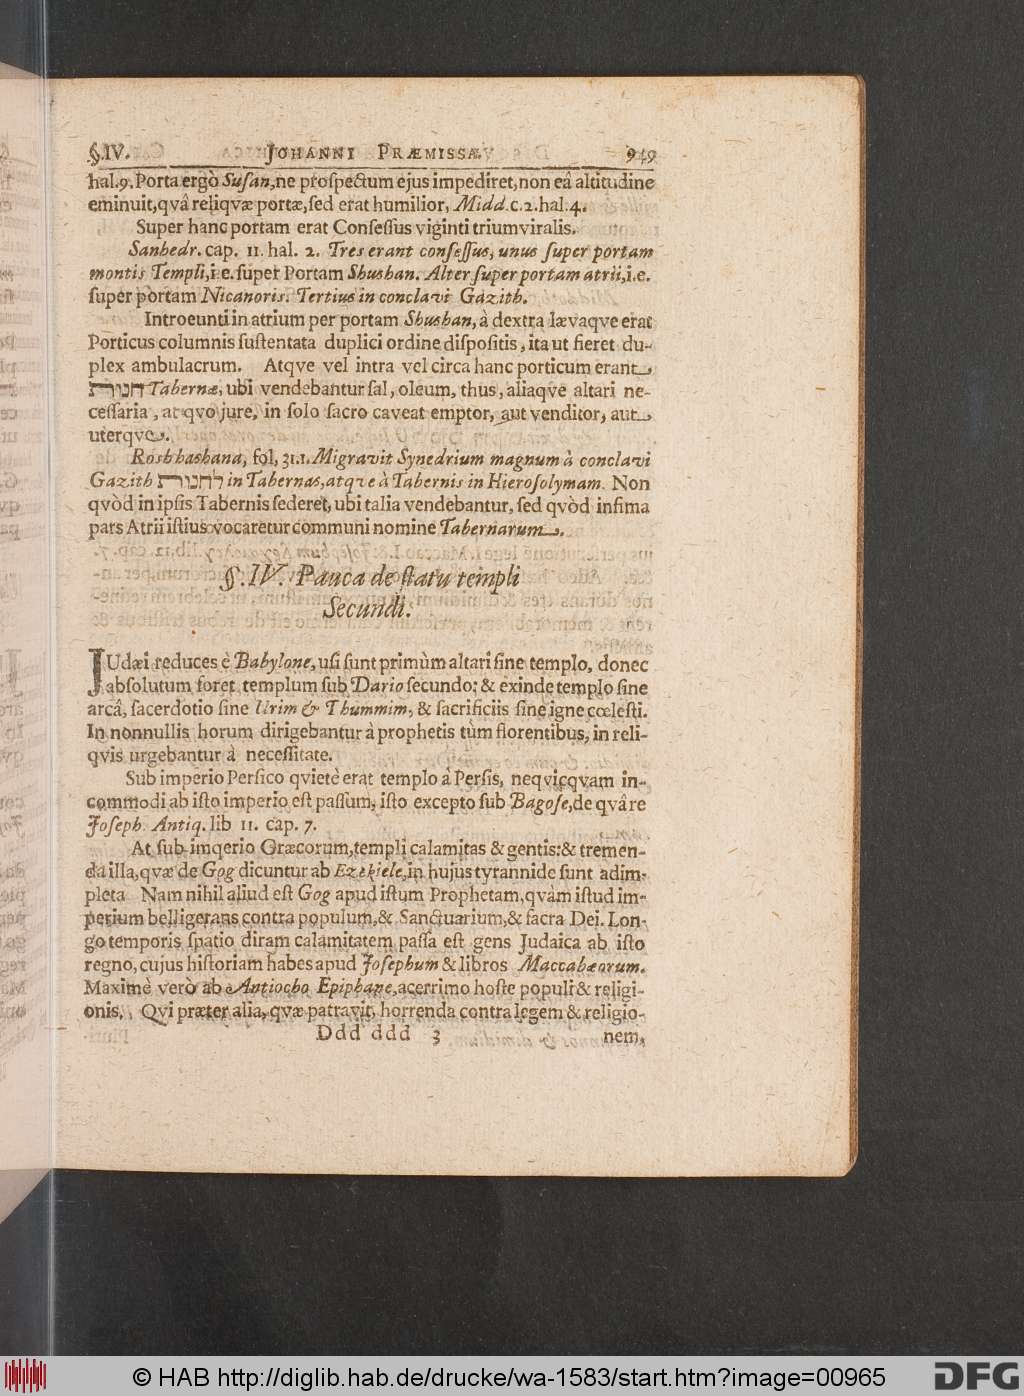 §.IV. JOHANNI PRÆMISSÆ. 949
hal.9. Porta ergò Susan, ne prospectum ejus impediret, non eâ altitudine
eminuit, qvâ reliqvæ portæ, sed erat humilior, Midd. c. 2. hal. 4.
Super hanc portam erat Consessus viginti triumviralis.
Sanhedr. cap. 11. hal. 2. Tres erant consessus, unus super portam
montis Templi, i.e. super Portam Shushan. Alter super portam atrii, i.e.
super portam Nicanoris. Tertius in conclavi Gazith.
Introeunti in atrium per portam Shushan, à dextra lævaqve erat
Porticus columnis sustentata duplici ordine dispositis, ita ut fieret du-
plex ambulacrum. Atqve vel intra vel circa hanc porticum erant
חנורת Tabernæ, ubi vendebantur sal, oleum, thus, aliaqve altari ne-
cessaria, at qvo jure, in solo sacro caveat emptor, aut venditor, aut
uterqve.
Rosh hashana, fol. 31.1. Migravit Synedrium magnum à conclavi
Gazith לחנורת in Tabernas, atqve à Tabernis in Hierosolymam. Non
qvòd in ipsis Tabernis sederet, ubi talia vendebantur, sed qvòd infima
pars Atrii istius vocaretur communi nomine Tabernarum.
§. IV. Pauca de statu templi
Secundi.
JUdæi reduces è Babylone, usi sunt primùm altari sine templo, donec
absolutum foret templum sub Dario secundo: & exinde templo sine
arcâ, sacerdotio sine Urim & Thummim, & sacrificiis sine igne cœlesti.
In nonnullis horum dirigebantur à prophetis tùm florentibus, in reli-
qvis urgebantur à necessitate.
Sub imperio Persico qviete erat templo à Persis, neqvicqvam in-
commodi ab isto imperio est passum, isto excepto sub Bagose, de qvâ re
Joseph. Antiq. lib 11. cap. 7.
At sub imqerio Græcorum, templi calamitas & gentis: & tremen-
da illa, qvæ de Gog dicuntur ab Ezekiele, in hujus tyrannide sunt adim-
pleta Nam nihil aliud est Gog apud istum Prophetam, qvàm istud im-
perium belligerans contra populum, & Sanctuarium, & sacra Dei. Lon-
go temporis spatio diram calamitatem passa est gens Judaica ab isto
regno, cujus historiam habes apud Josephum & libros Maccabæorum.
Maximè verò ab Antiocho Epiphane, acerrimo hoste populi & religi-
onis. Qvi præter alia, qvæ patravit, horrenda contra legem & religio-
Ddd ddd 3 nem,
© HAB http://diglib.hab.de/drucke/wa-1583/start.htm?image=00965 DFG